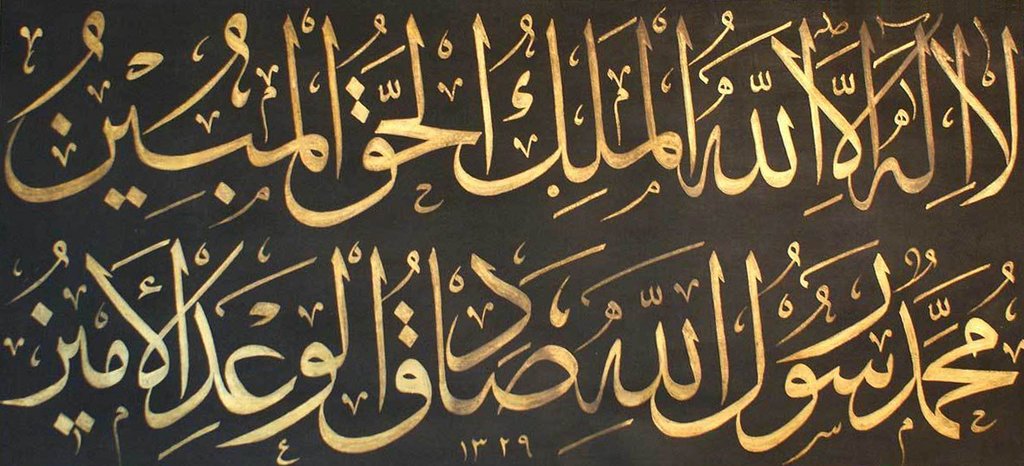 لَا إِلٰهَ إِلَّا اللّٰهُ الْمَلِكُ الْحَقُّ الْمُبِينُ
مُحَمَّدٌ رَسُولُ اللّٰهِ صَادِقُ الْوَعْدِ الْأَمِينُ
١٣٢٩